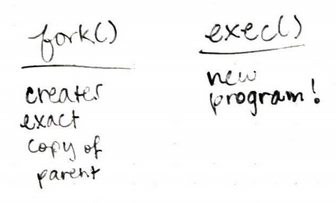 fork()
creates
exact
copy of
parent
exec()
new
program!